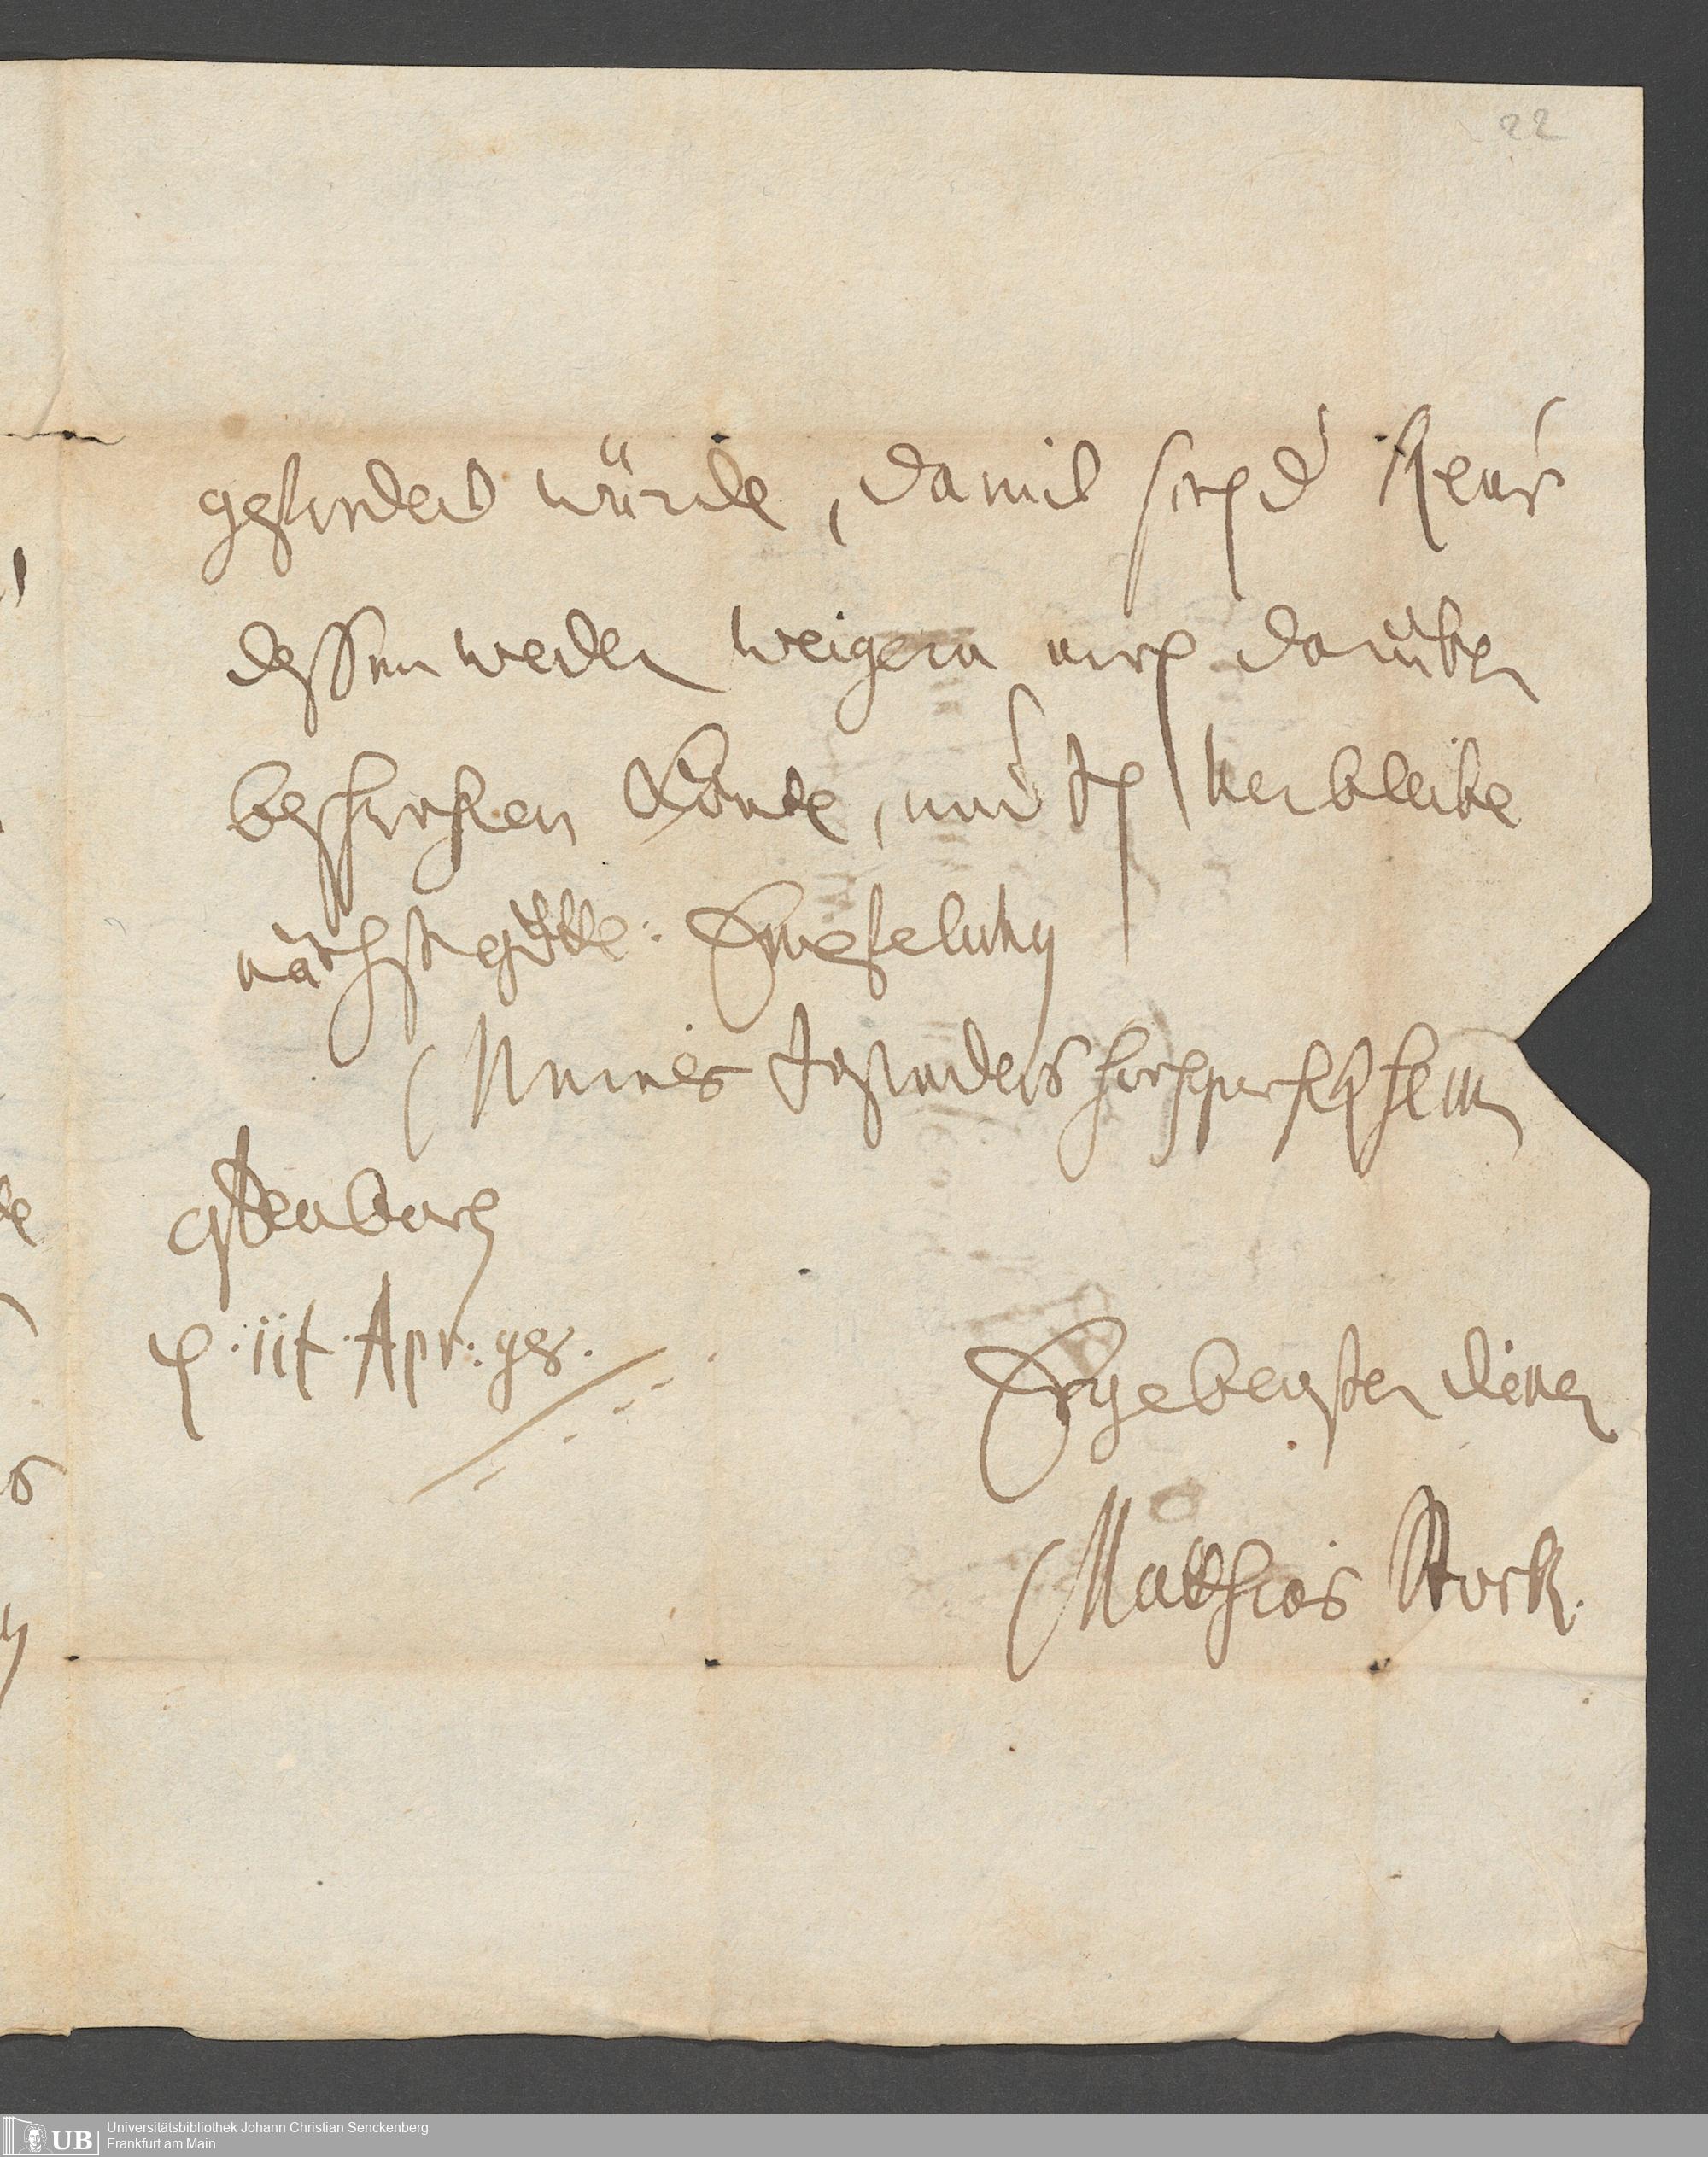 22
gefordert würde, damit sich d' Reus
dessen weder weigern noch darüber
beschwehren Könte, und Ich verbleibe
nächst göttl: Empfelung
Meines Insonders hochgeehrten herrn
Ostenbach
d. 11t. Apr: 98.
Ergebenster diener
Matthias Stork.
UB
Universitätsbibliothek Johann Christian Senckenberg
Frankfurt am Main